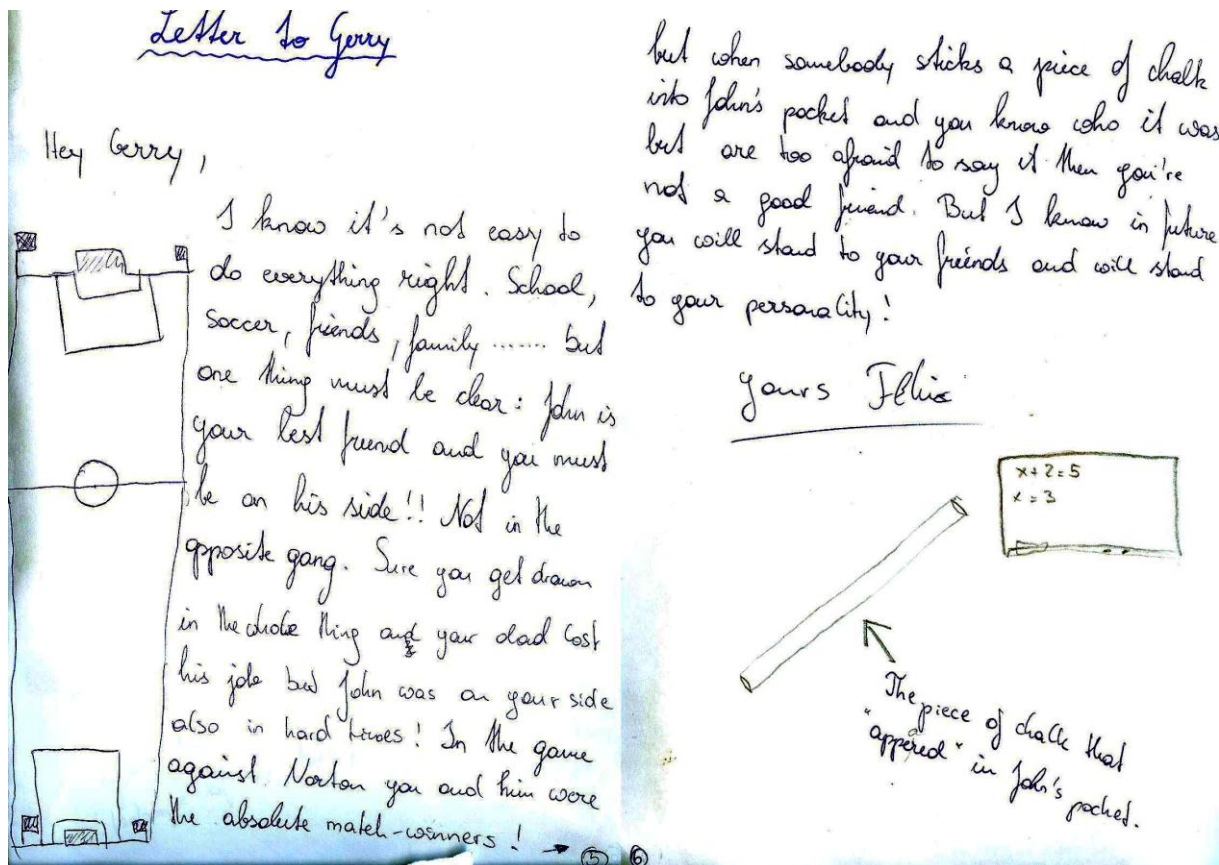 Letter to Gerry
Hey Gerry,
I know it's not easy to
do everything right. School,
soccer, friends, family ....... but
one thing must be clear: John is
your best friend and you must
be on his side!! Not in the
opposite gang. Sure you get drawn
in the whole thing and your dad lost
his job but John was on your side
also in hard times! In the game
against Norton you and him were
the absolute match-winners! → 5
but when somebody sticks a piece of chalk
into John's pocket and you know who it was
but are too afraid to say it then you're
not a good friend. But I know in future
you will stand to your friends and will stand
to your personality!
yours Felix
x+2=5
x=3
The piece of chalk that
"appered" in John's pocket.
6